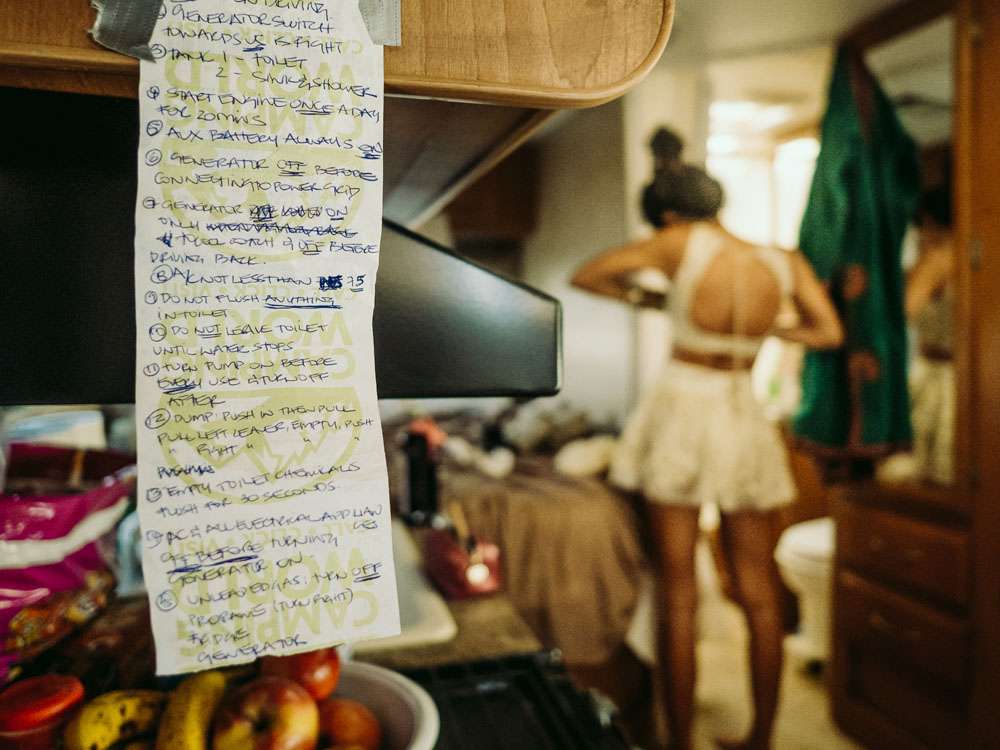 ON DRIVING.
② GENERATOR SWITCH
TOWARDS US IS RIGHT
③ TANK 1 - TOILET
2 - SINK & SHOWER
④ START ENGINE ONCE A DAY
FOR 20 MINS
⑤ AUX BATTERY ALWAYS ON
⑥ GENERATOR OFF BEFORE
CONNECTING TO POWER GRID
⑦ GENERATOR ON
ONLY
OFF BEFORE
DRIVING BACK.
⑧ A/C NOT LESS THAN 75
⑨ DO NOT FLUSH ANYTHING
IN TOILET
⑩ DO NOT LEAVE TOILET
UNTIL WATER STOPS
⑪ TURN PUMP ON BEFORE
EVERY USE & TURN OFF
AFTER
⑫ DUMP: PUSH IN THEN PULL
PULL LEFT LEAVER, EMPTY, PUSH
" RIGHT " " "
⑬ EMPTY TOILET CHEMICALS
FLUSH FOR 30 SECONDS.
⑭ AC & ALL ELECTRICAL APPLIAN
CES
OFF BEFORE TURNING
GENERATOR ON.
⑮ UNLEADED GAS: TURN OFF
PROPANE (TURN RIGHT)
FRIDGE
GENERATOR
CAMPING
WORLD